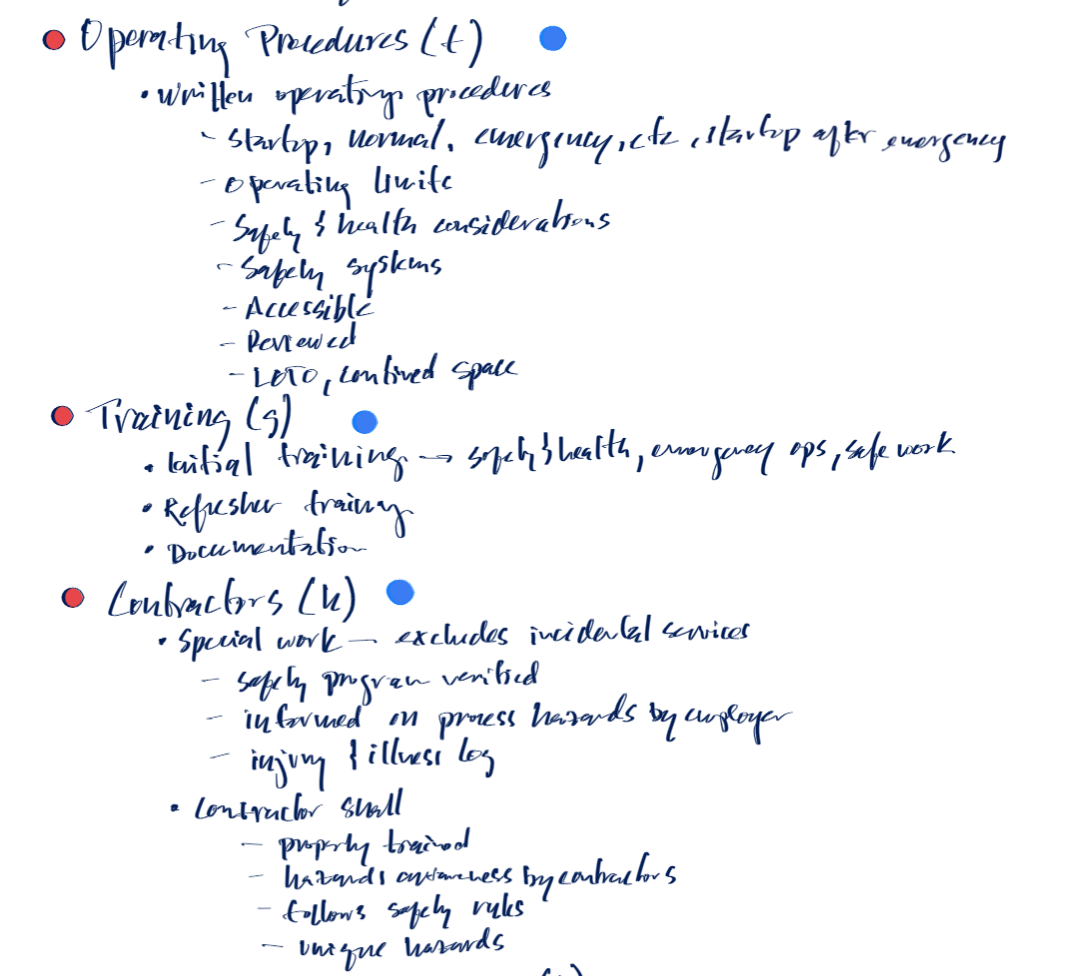 Operating Procedures (f)
• Written operating procedures
- Startup, normal, emergency, etc, startup after emergency
- Operating limits
- Safety & health considerations
- Safety systems
- Accessible
- Reviewed
- LOTO, confined space
Training (g)
• Initial training → safety & health, emergency ops, safe work
• Refresher training
• Documentation
Contractors (h)
• Special work — excludes incidental services
- safety program verified
- informed on process hazards by employer
- injury & illness log
• Contractor shall
- properly trained
- hazards awareness by contractors
- follows safety rules
- unique hazards